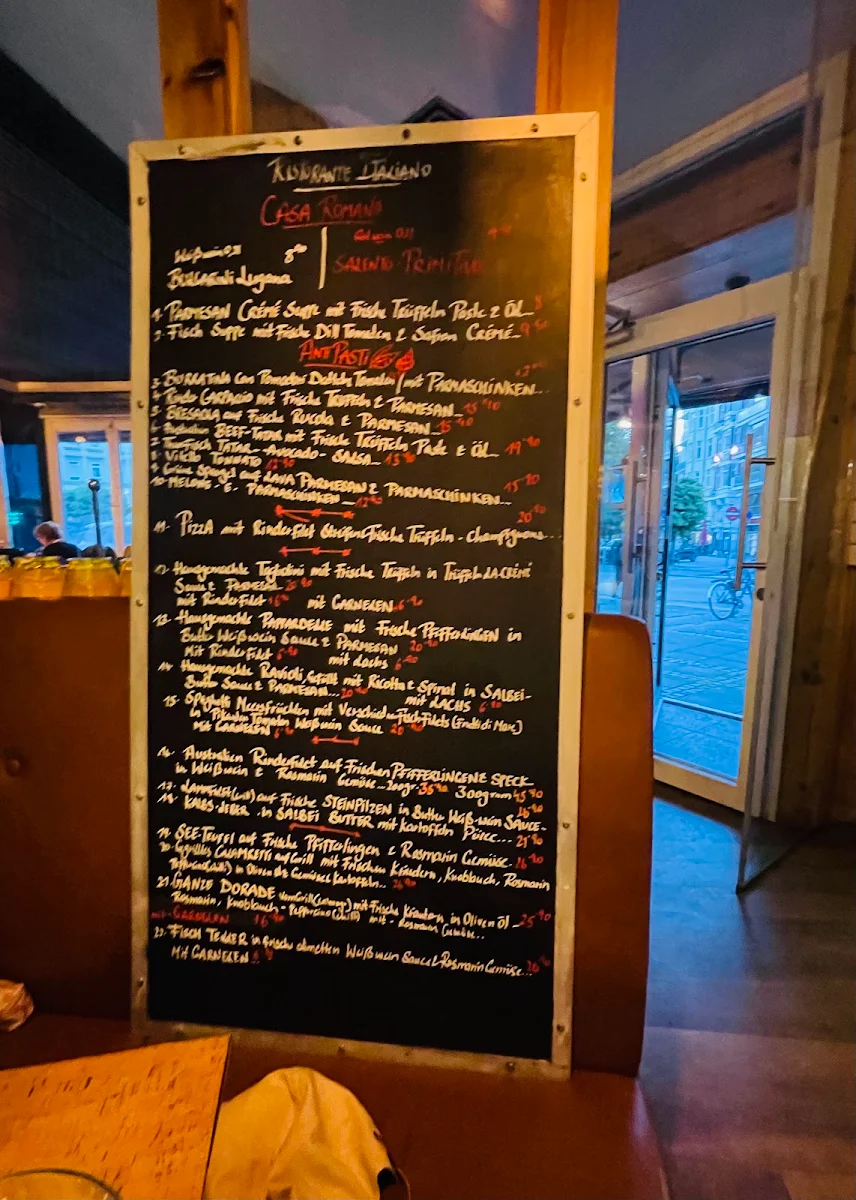 RISTORANTE ITALIANO
CASA ROMANO
Weißwein 0,1 8,90
BULGARINI Lugana
0,1
SALENTO PRIMITIVO
1. PARMESAN CRÉMÉ Suppe mit Frische Trüffeln Paste & ÖL
2. Fisch Suppe mit Frische Dill Tomaten & Safran CRÉMÉ 9,50
ANTIPASTI
3. BURRATINA con Pomodori Datteln Tomaten / mit PARMASCHINKEN...
4. Rinds CARPACCIO mit Frische TRÜFFELN & PARMESAN 15,90
5. BRESAOLA auf Frische RUCOLA & PARMESAN 15,90
6. BEEF-TATAR mit Frische Trüffeln Paste & ÖL 19,90
7. Thunfisch TATAR - AVOCADO - SALSA 15,90
8. Vitello TONNATO
9. Grüne Spargel auf LAVA PARMESAN & PARMASCHINKEN... 15,90
10. MELONE - E - PARMASCHINKEN
20,90
11. PIZZA mit Rinderfilet Streifen-Frische Trüffeln - champignons...
12. Hausgemachte Tagliolini mit Frische Trüffeln in Trüffel LA CRÉMÉ
Sauce & PARMESAN
mit RinderFilet mit GARNELEN 6,90
13. Hausgemachte PAPPARDELLE mit Frische Pfifferlingen in
Butter Weißwein Sauce & PARMESAN 20,90
Mit Rinder Filet 6,90 mit Lachs 6,90
14. Hausgemachte Ravioli, Gefüllt mit Ricotta & Spinat in SALBEI-
Butter Sauce & PARMESAN... mit LACHS 6,90
15. Spaghetti Meeresfrüchten mit Verschieden Fisch Filets (Frutti di Mare)
in Tomaten Weißwein Sauce
Mit GARNELEN
16. Australien Rinderfilet auf Frischen PFIFFERLINGEN & SPECK
in Weißwein & Rosmarin Gemüse... 200gr. 35,90 300gramm 45,90
17. auf Frische STEINPILZEN in Butter Weißwein SAUCE
18. KALBS-LEBER in SALBEI BUTTER mit Kartoffeln Püree... 21,90
19. SEE-TEUFEL auf Frische Pfifferlingen & Rosmarin Gemüse. 26,90
20. Gegrilltes CALAMARETTI auf Grill mit Frischen Kräutern, Knoblauch, Rosmarin
in Oliven Öl Gemüse Kartoffeln..
21. GANZE DORADE vom Grill mit Frische Kräutern in Oliven öl 25,90
Rosmarin, Knoblauch - Peperoncino (chilli) mit - Rosmarin Gemüse..
mit GARNELEN
22. FISCH TELLER in frische Weißwein Sauce & Rosmarin Gemüse...
Mit GARNELEN